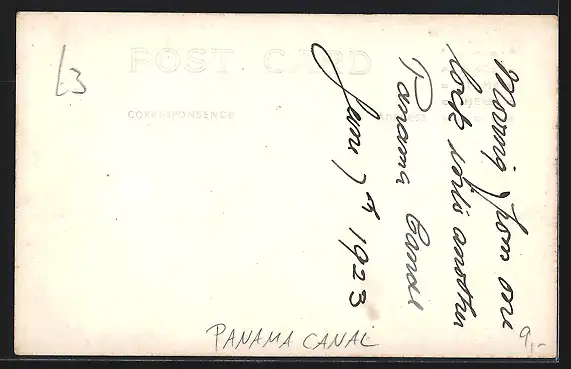 POST CARD
CORRESPONDENCE
ADDRESS
Moving from one
lock into another
Panama Canal
June 7th 1923
PANAMA CANAL
L3
9,-